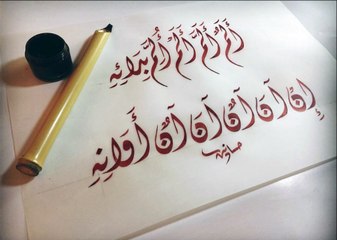 أَلَمٌ أَلَمَّ أَلَمْ أُلِمَّ بِدَائِهِ
إِنْ آنَ آنٌ آنَ آنُ أَوَانِهِ